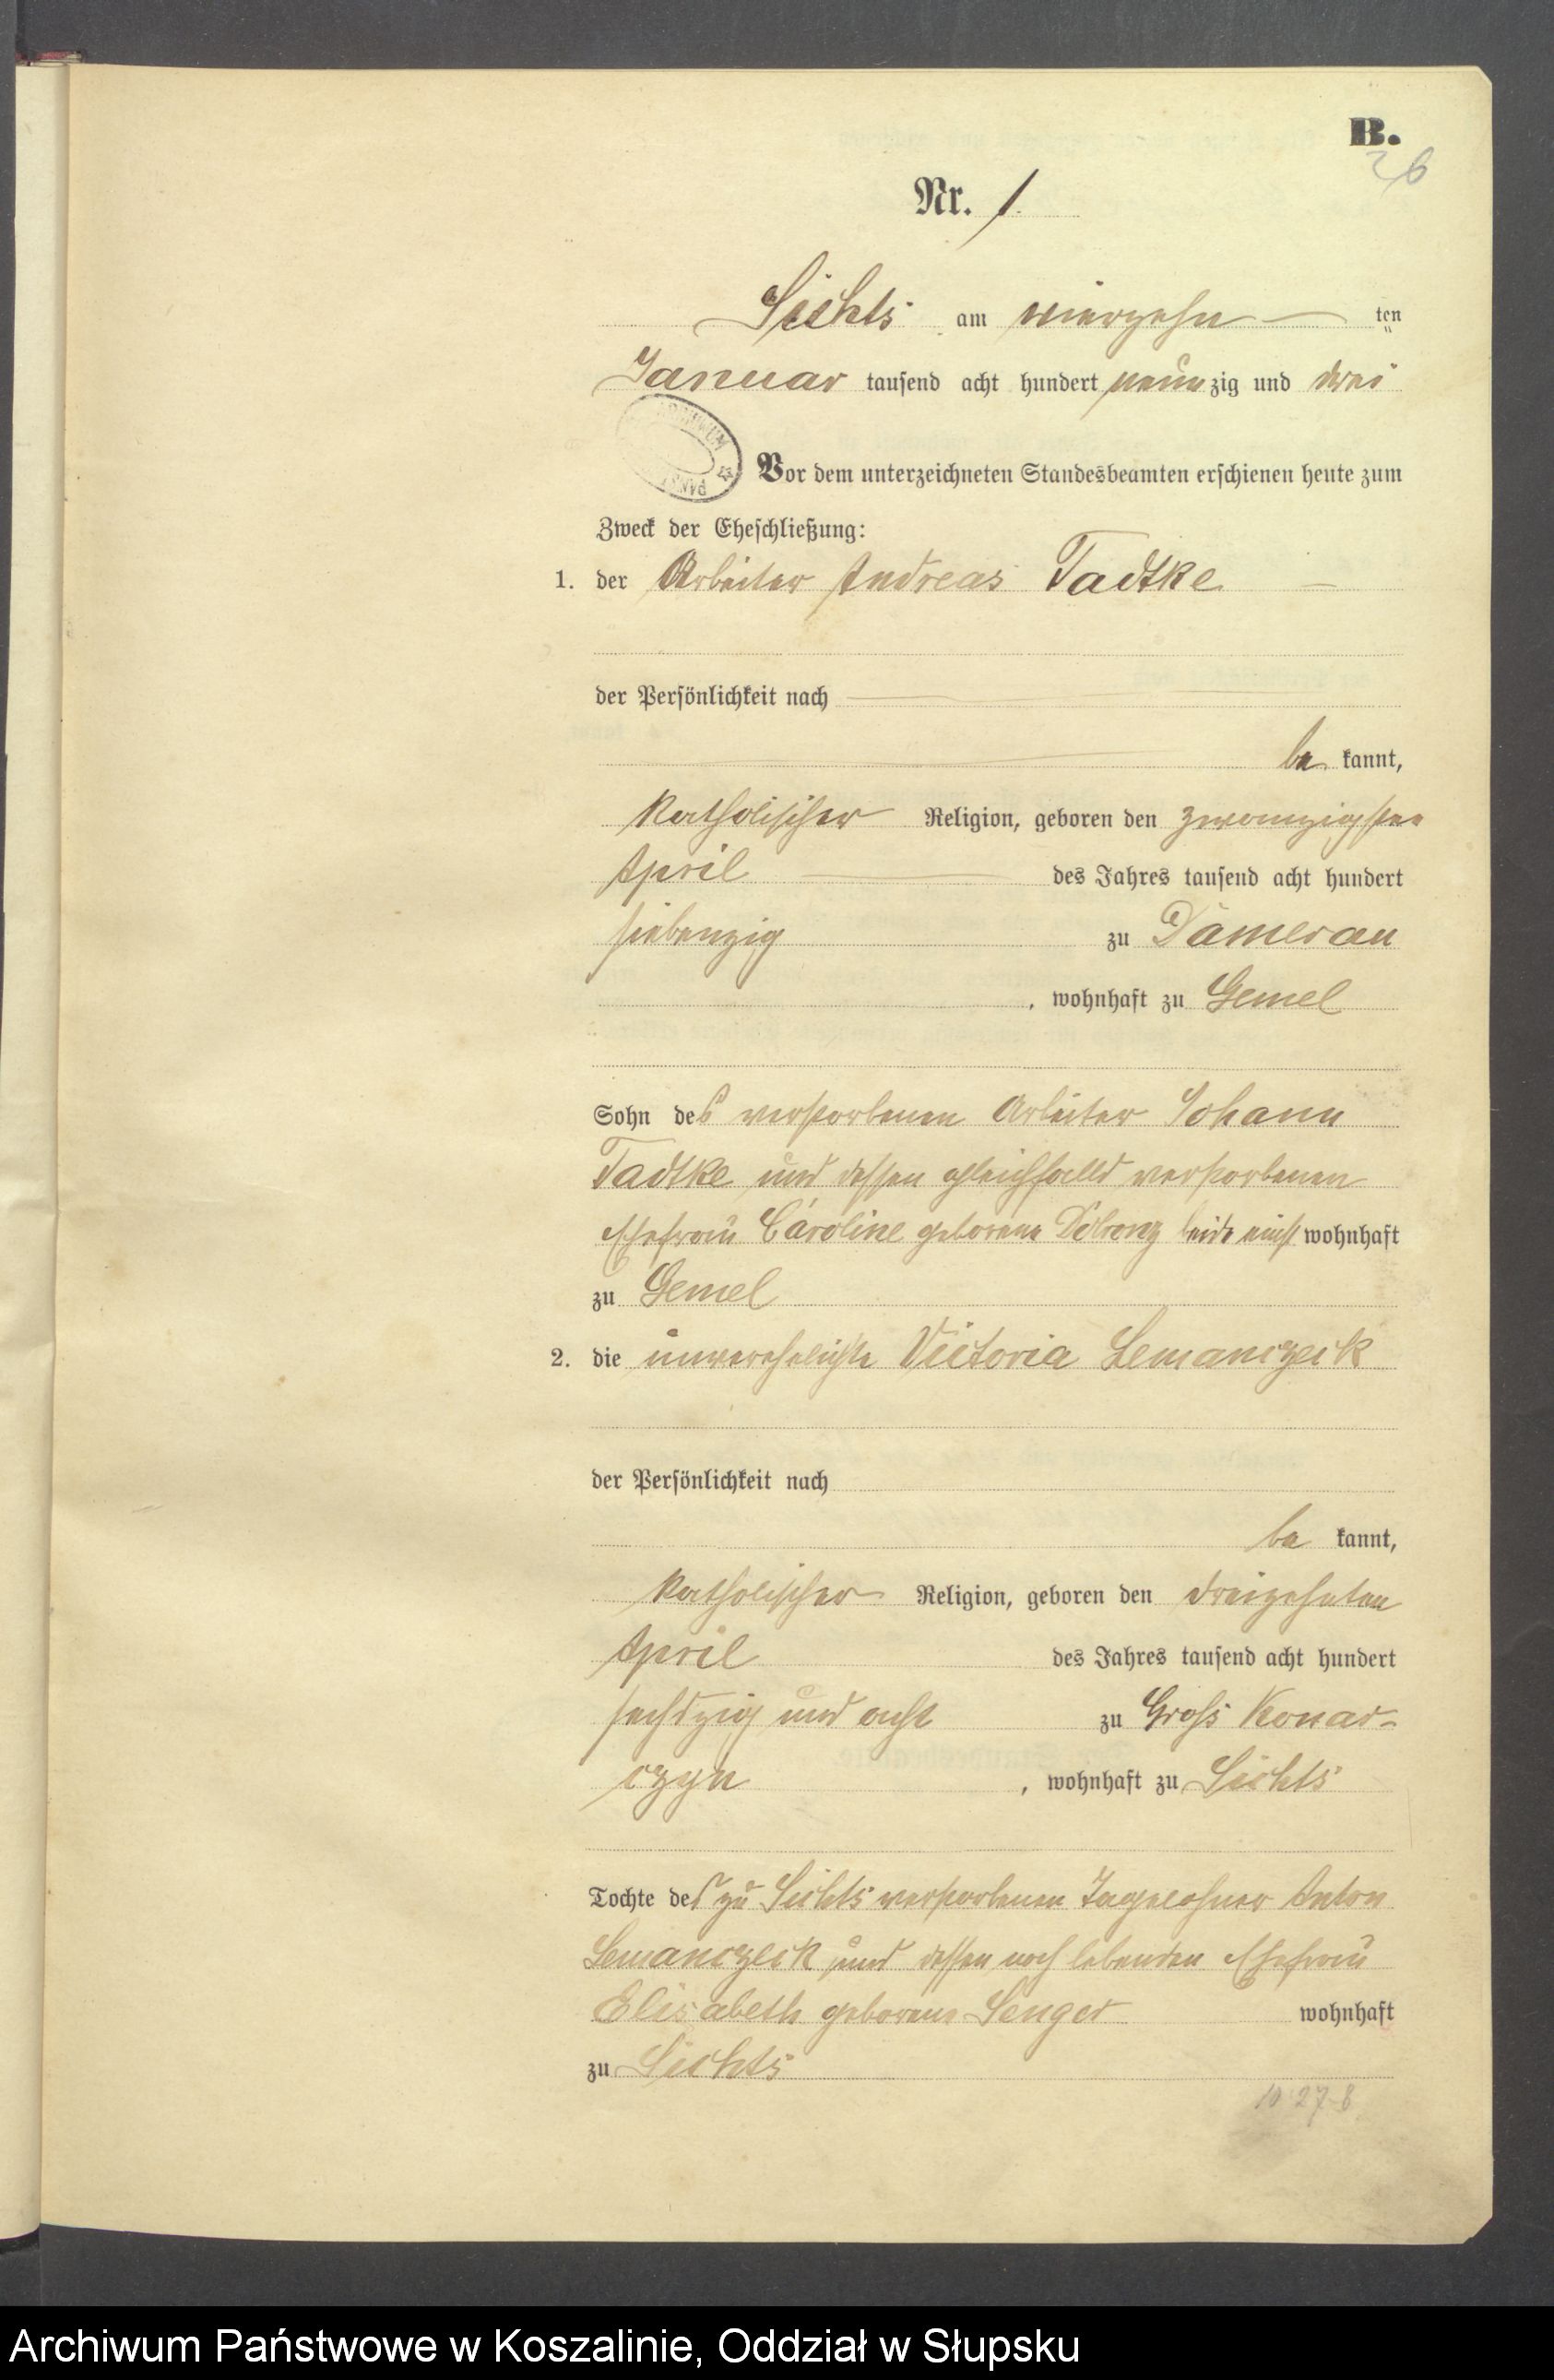 B.
26
Nr. 1.
Lichts am vierzehn ten
Januar tausend acht hundert neunzig und drei
Vor dem unterzeichneten Standesbeamten erschienen heute zum
Zweck der Eheschließung:
1. der Arbeiter Andreas Tadtke
der Persönlichkeit nach
be kannt,
katholischer Religion, geboren den zwanzigsten
April des Jahres tausend acht hundert
siebenzig zu Damerau
, wohnhaft zu Gemel
Sohn des verstorbenen Arbeiter Johann
Tadtke und dessen gleichfalls verstorbenen
Ehefrau Caroline geborene beide einst wohnhaft
zu Gemel
2. die unverehelichte Victoria Lemanczeck
der Persönlichkeit nach
be kannt,
katholischer Religion, geboren den dreizehnten
April des Jahres tausend acht hundert
sechszig und acht zu Gross Konar-
czyn , wohnhaft zu Lichts
Tochte des zu Lichts verstorbenen Tagelohner Anton
Lemanczeck und dessen noch lebenden Ehefrau
Elisabeth geborene Senger wohnhaft
zu Lichts
10 27-8
Archiwum Państwowe w Koszalinie, Oddział w Słupsku